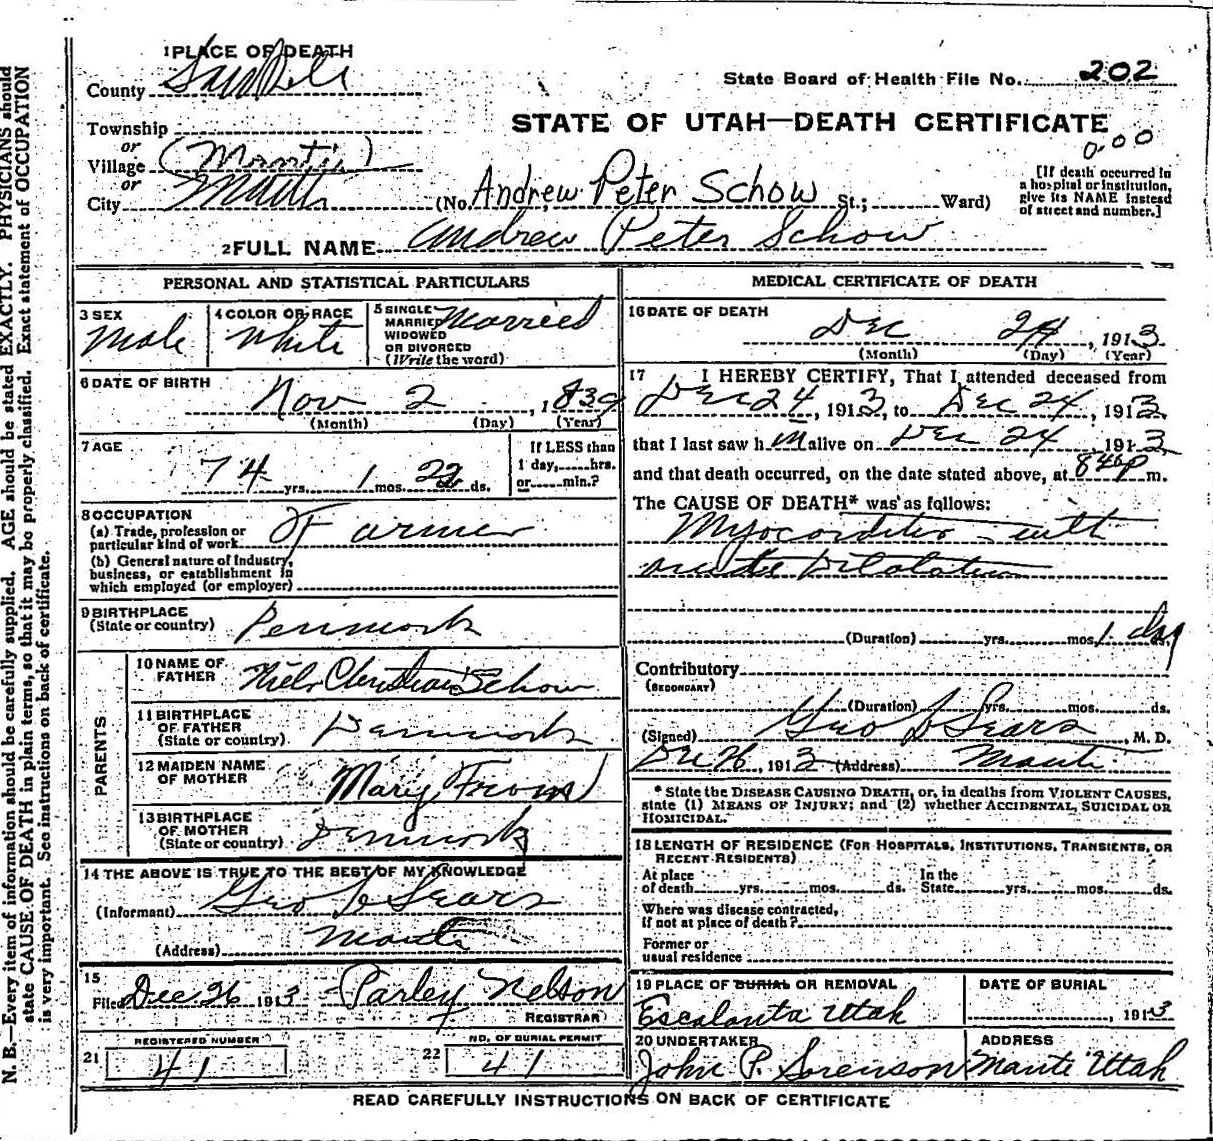 1 PLACE OF DEATH
County Sanpete
State Board of Health File No. 202
STATE OF UTAH—DEATH CERTIFICATE
0.00
Township
or
Village (Manti)
or
City Manti (No. Andrew Peter Schow St.; Ward)
[If death occurred in
a hospital or institution,
give its NAME instead
of street and number.]
2 FULL NAME Andrew Peter Schow
PERSONAL AND STATISTICAL PARTICULARS
3 SEX
Male
4 COLOR OR RACE
White
5 SINGLE
MARRIED
WIDOWED
OR DIVORCED
(Write the word)
Married
6 DATE OF BIRTH
Nov 2, 1839
(Month) (Day) (Year)
7 AGE
74 yrs. 1 mos. 22 ds.
If LESS than
1 day, hrs.
or min.?
8 OCCUPATION
(a) Trade, profession or
particular kind of work Farmer
(b) General nature of Industry,
business, or establishment in
which employed (or employer)
9 BIRTHPLACE
(State or country) Denmark
PARENTS
10 NAME OF
FATHER Niels Christian Schow
11 BIRTHPLACE
OF FATHER
(State or country) Denmark
12 MAIDEN NAME
OF MOTHER Mary
13 BIRTHPLACE
OF MOTHER
(State or country) Denmark
14 THE ABOVE IS TRUE TO THE BEST OF MY KNOWLEDGE
(Informant) Geo L Sears
(Address) Manti
15
Filed Dec 26 1913 Parley Nelson
REGISTRAR
REGISTERED NUMBER
21 41
NO. OF BURIAL PERMIT
22 41
MEDICAL CERTIFICATE OF DEATH
16 DATE OF DEATH
Dec 24, 1913
(Month) (Day) (Year)
17 I HEREBY CERTIFY, That I attended deceased from
Dec 24, 1913, to Dec 24, 1913.
that I last saw him alive on Dec 24 1913
and that death occurred, on the date stated above, at 840 p m.
The CAUSE OF DEATH* was as follows:
Myocarditis with
acute Dilatation
(Duration) yrs. mos. 1 ds.
Contributory
(SECONDARY)
(Duration) yrs. mos. ds.
(Signed) Geo L Sears, M. D.
Dec 26, 1913 (Address) Manti
* State the DISEASE CAUSING DEATH, or, in deaths from VIOLENT CAUSES,
state (1) MEANS OF INJURY; and (2) whether ACCIDENTAL, SUICIDAL OR
HOMICIDAL.
18 LENGTH OF RESIDENCE (FOR HOSPITALS, INSTITUTIONS, TRANSIENTS, OR
RECENT RESIDENTS)
At place
of death yrs. mos. ds.
In the
State yrs. mos. ds.
Where was disease contracted,
if not at place of death?
Former or
usual residence
19 PLACE OF BURIAL OR REMOVAL
Escalanta Utah
DATE OF BURIAL
, 1913
20 UNDERTAKER
John P. Sorenson
ADDRESS
Mante Utah
READ CAREFULLY INSTRUCTIONS ON BACK OF CERTIFICATE
N. B.—Every item of information should be carefully supplied. AGE should be stated EXACTLY. PHYSICIANS should
state CAUSE OF DEATH in plain terms, so that it may be properly classified. Exact statement of OCCUPATION
is very important. See instructions on back of certificate.